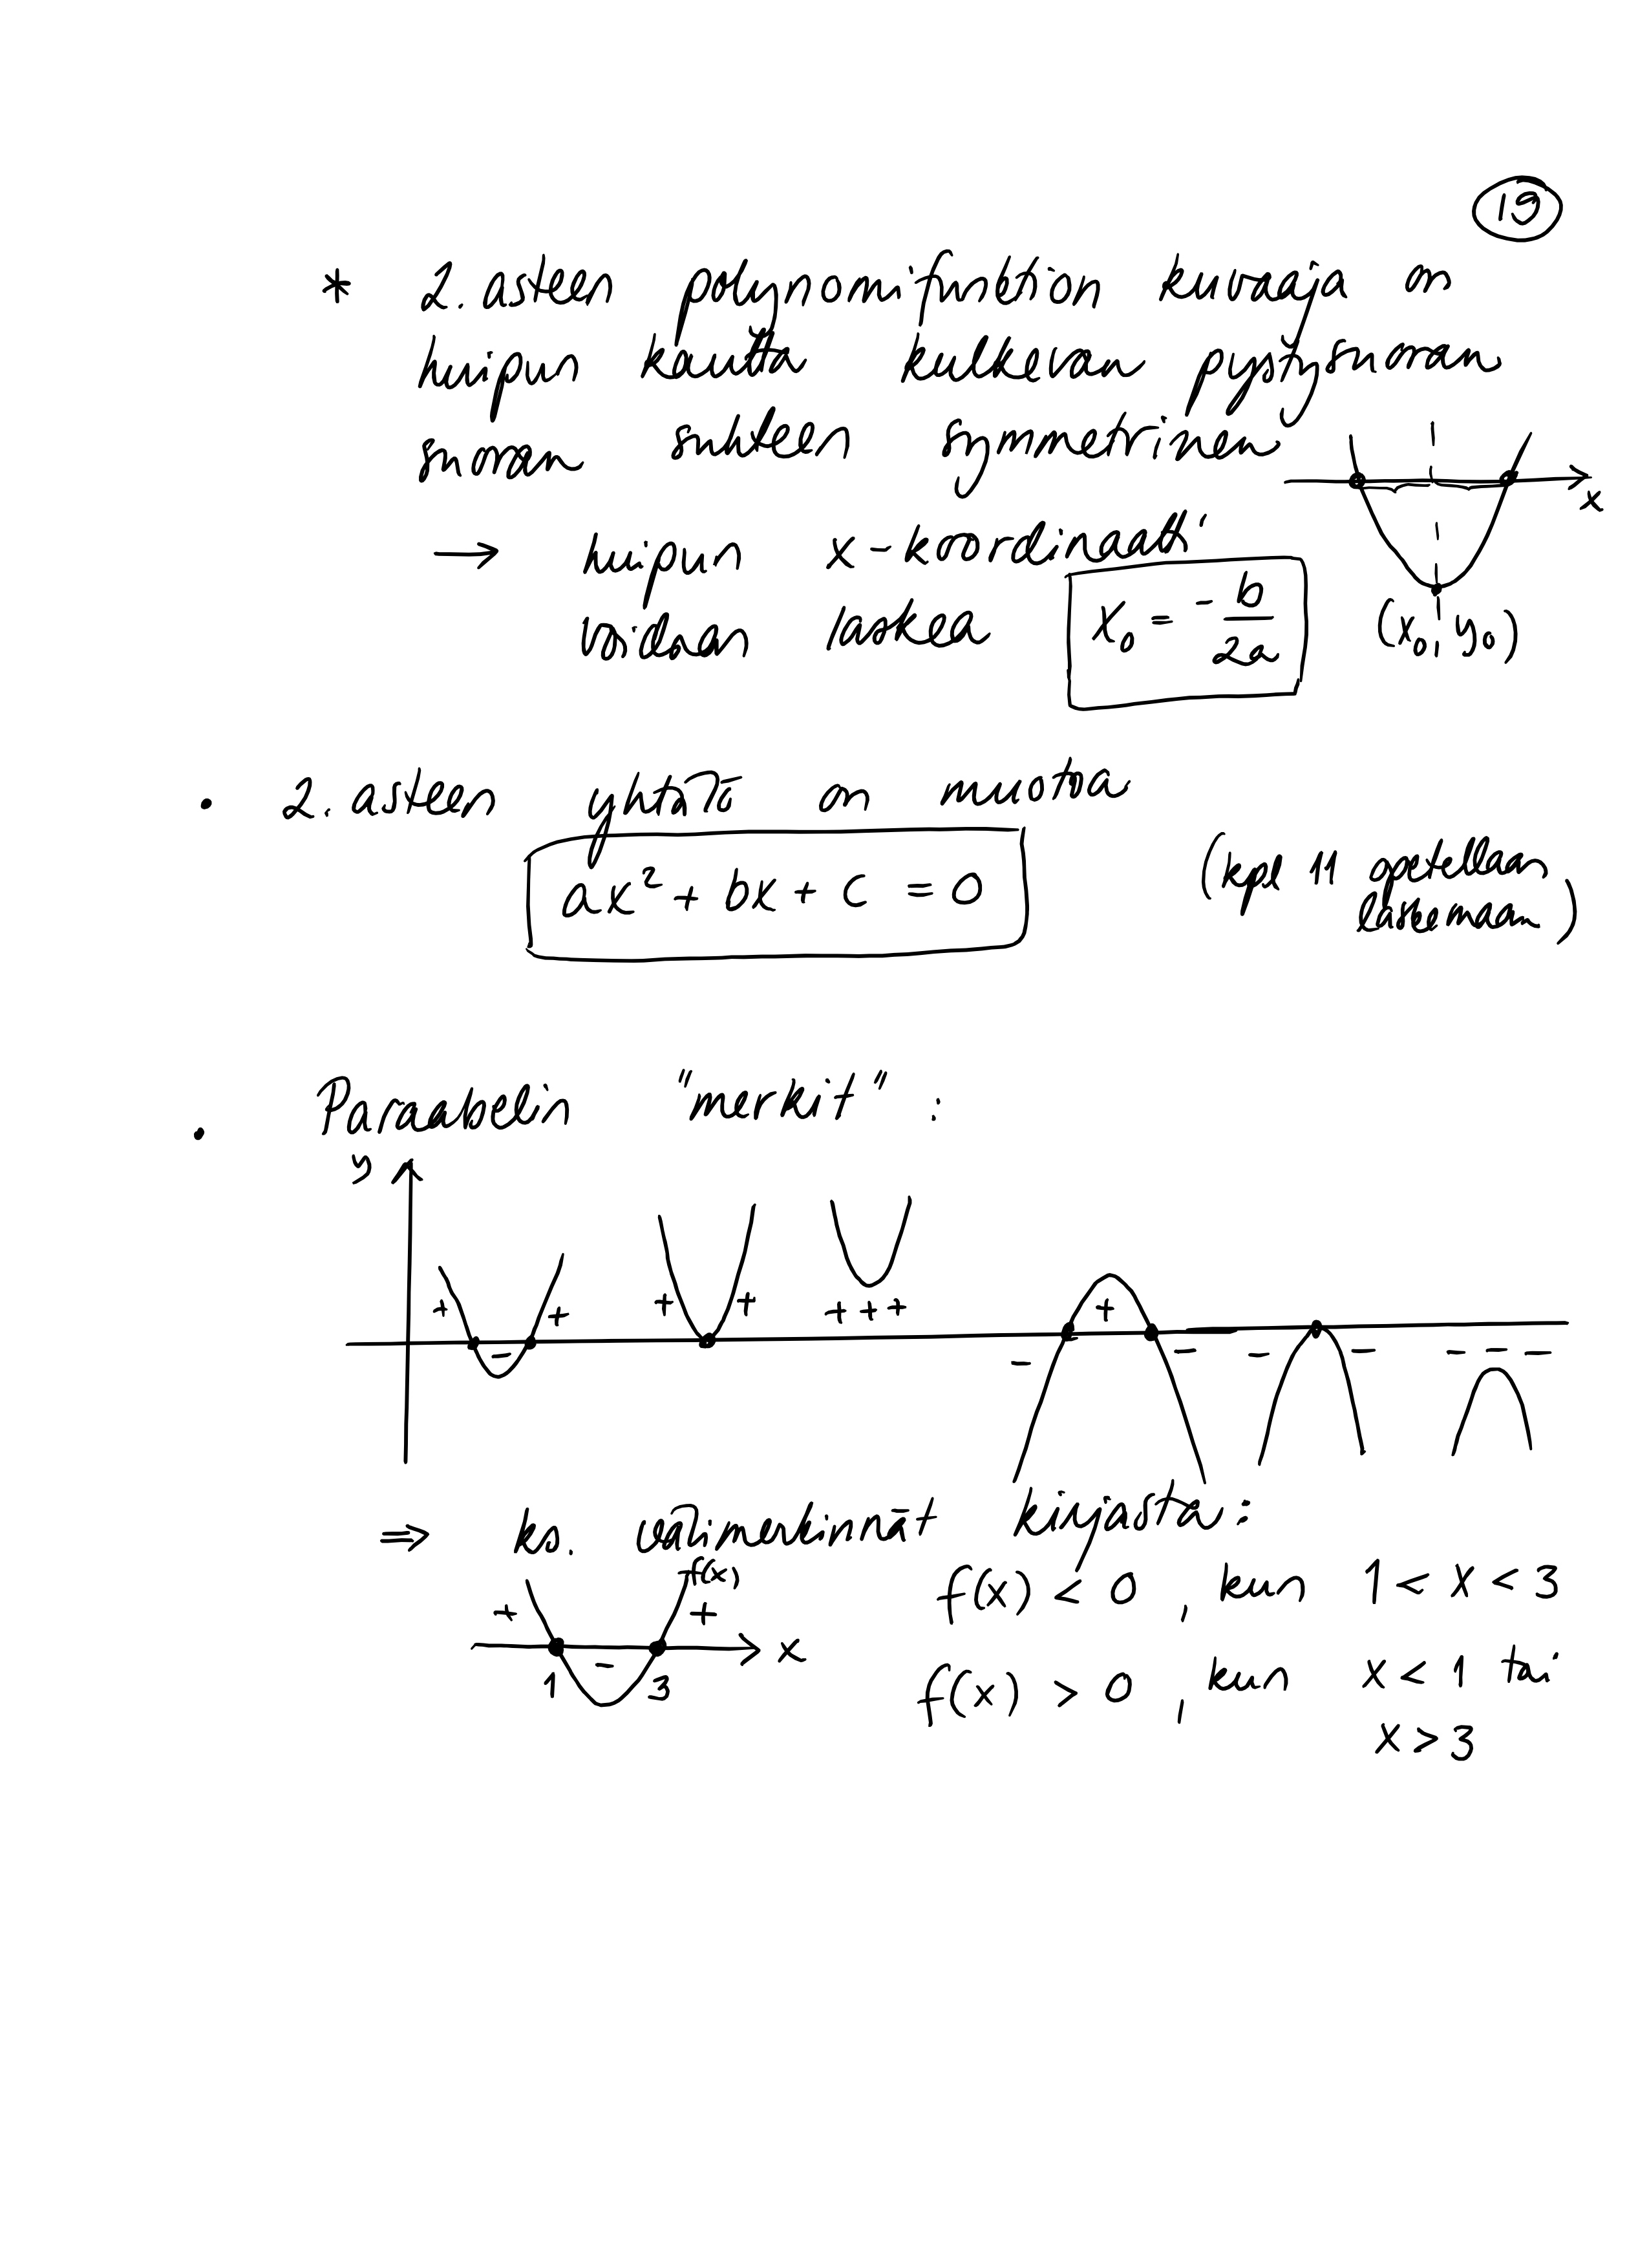 19
* 2. asteen polynomifunktion kuvaaja on
huipun kautta kulkevan pystysuoran
suoran suhteen symmetrinen
x
→ huipun x-koordinaatti
voidaan laskea x₀ = - b/2a
(x₀, y₀)
• 2. asteen yhtälö on muotoa
ax² + bx + c = 0
(kpl 11 opetellaan
laskemaan)
• Paraabelin "merkit" :
y
+ - + + + + + + - + - - - - - -
⇒ ks. välimerkinnät kirjasta:
f(x)
+ - + x
1 3
f(x) < 0 , kun 1 < x < 3
f(x) > 0 , kun x < 1 tai
x > 3